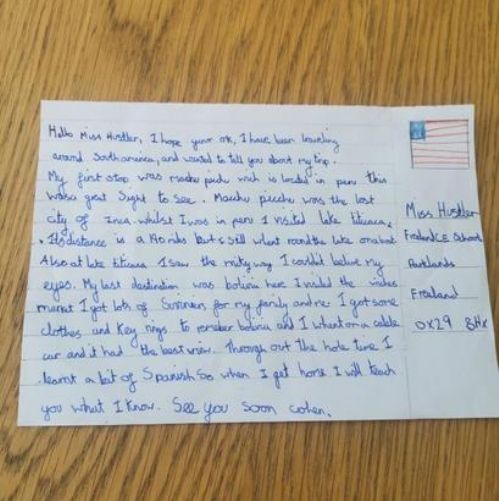 Hello Miss Hustler, I hope your ok, I have been traveling
around South america, and wanted to tell you about my trip.
My first stop was machu pichu wich is located in peru this
was a great Sight to see. Macchu picchu was the lost
city of Inca. whilst I was in peru I visited lake titicaca,
Its distance is a 140 miles but I still whent round the lake on a boat
Also at lake titicaca I saw the milky way I couldn't believe my
eyes. My last destination was bolivia here I visited the witches
market I got lots of Suvinirs for my family and me. I got some
clothes and Key rings to remeber bolivia and I whent on a cable
car and it had the best view. Through out the hole time I
learnt a bit of Spanish So when I get home I will teach
you what I know. See you Soon cohen.
Miss Hustler
Freeland CE School
Parklands
Freeland
OX29 8HX